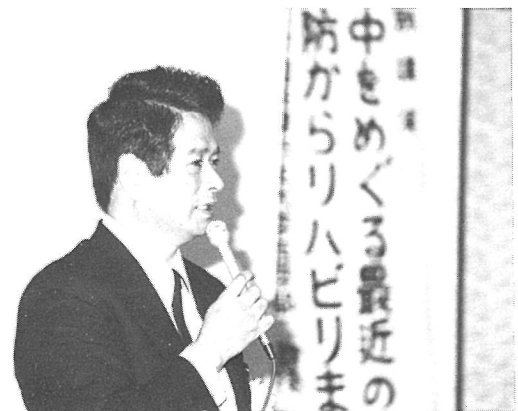 中をめぐる最近の
防からリハビリま